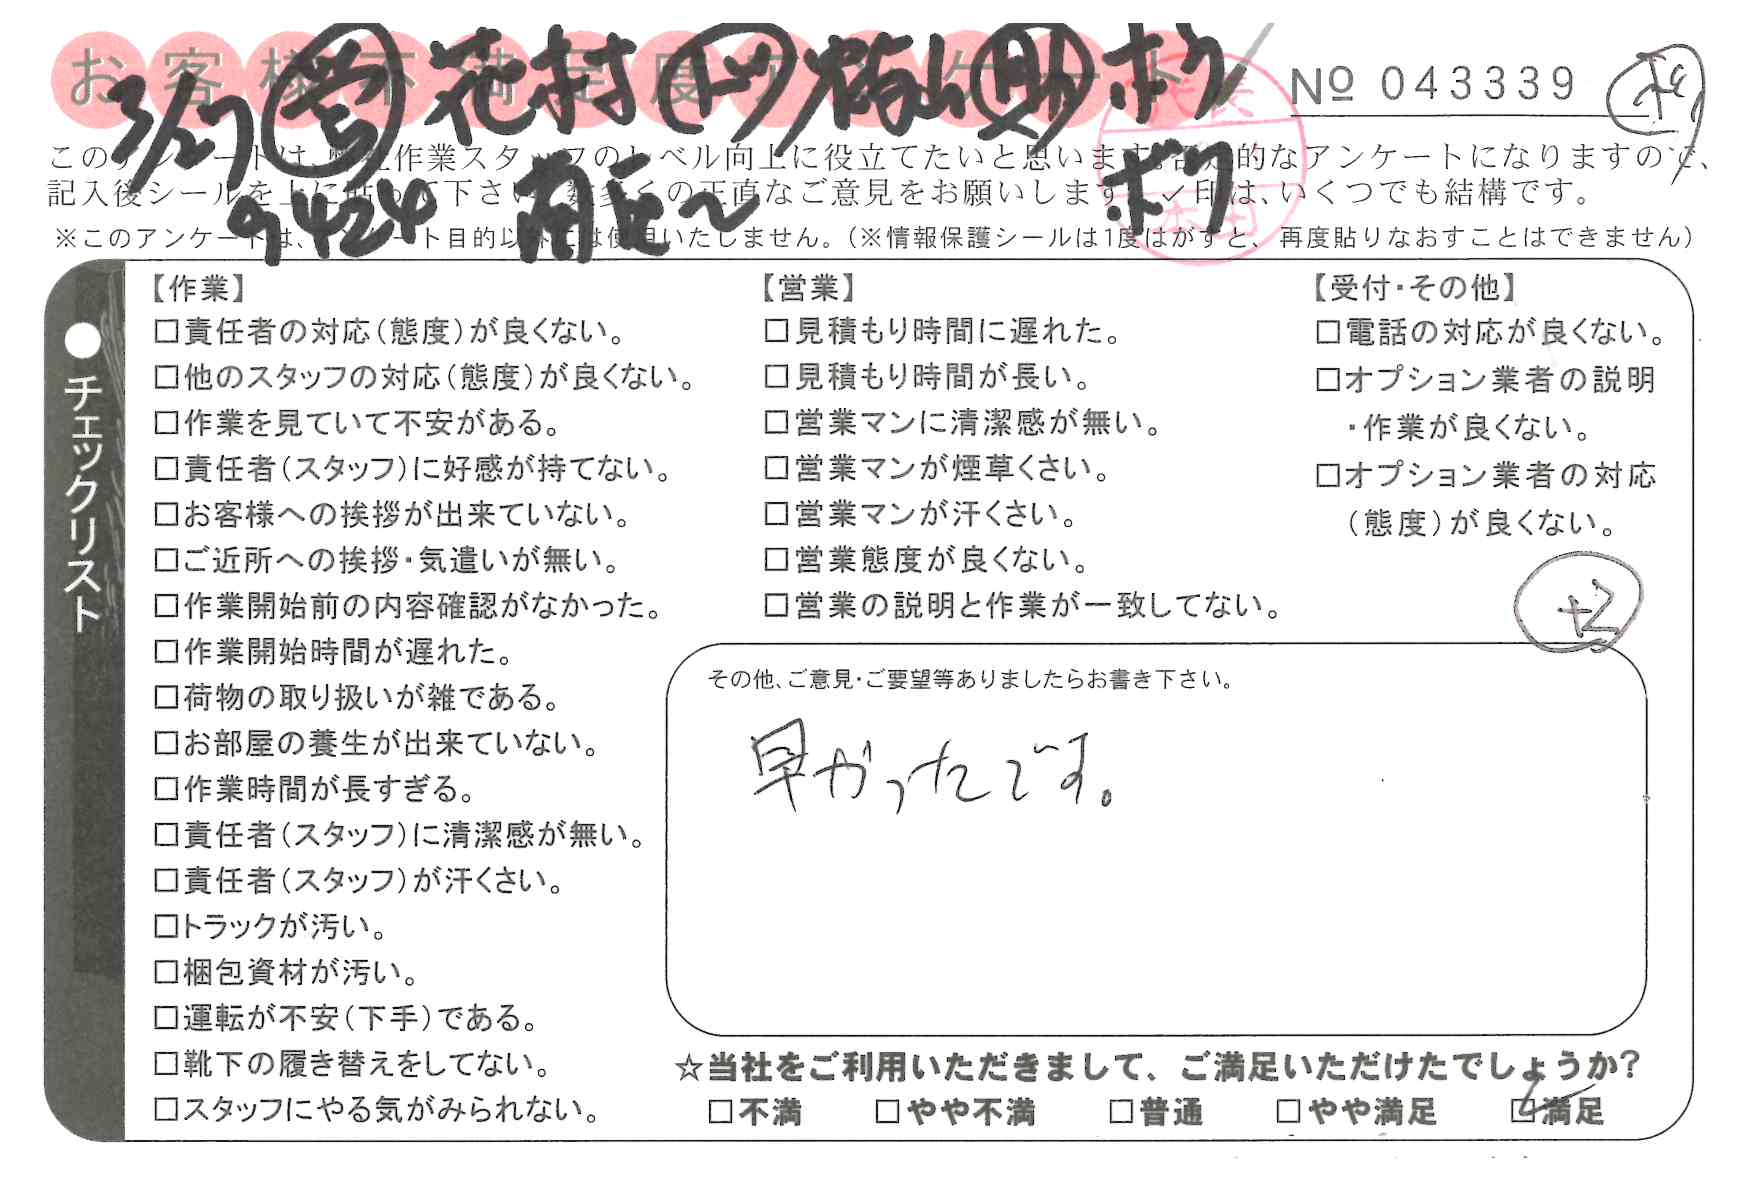 お客様不満足度アンケート
3/27 営 花村 トツ 梅山 助 ボク
№ 043339
このアンケートは、弊社作業スタッフのレベル向上に役立てたいと思います。否定的なアンケートになりますので、
記入後シールを上に貼って下さい。数多くの正直なご意見をお願いします。✓印は、いくつでも結構です。
9424 ボク
※このアンケートは、アンケート目的以外には使用いたしません。(※情報保護シールは1度はがすと、再度貼りなおすことはできません)
●チェックリスト
【作業】
□責任者の対応(態度)が良くない。
□他のスタッフの対応(態度)が良くない。
□作業を見ていて不安がある。
□責任者(スタッフ)に好感が持てない。
□お客様への挨拶が出来ていない。
□ご近所への挨拶・気遣いが無い。
□作業開始前の内容確認がなかった。
□作業開始時間が遅れた。
□荷物の取り扱いが雑である。
□お部屋の養生が出来ていない。
□作業時間が長すぎる。
□責任者(スタッフ)に清潔感が無い。
□責任者(スタッフ)が汗くさい。
□トラックが汚い。
□梱包資材が汚い。
□運転が不安(下手)である。
□靴下の履き替えをしてない。
□スタッフにやる気がみられない。
【営業】
□見積もり時間に遅れた。
□見積もり時間が長い。
□営業マンに清潔感が無い。
□営業マンが煙草くさい。
□営業マンが汗くさい。
□営業態度が良くない。
□営業の説明と作業が一致してない。
【受付・その他】
□電話の対応が良くない。
□オプション業者の説明
・作業が良くない。
□オプション業者の対応
(態度)が良くない。
その他、ご意見・ご要望等ありましたらお書き下さい。
早かったです。
☆当社をご利用いただきまして、ご満足いただけたでしょうか?
□不満 □やや不満 □普通 □やや満足 ☑満足